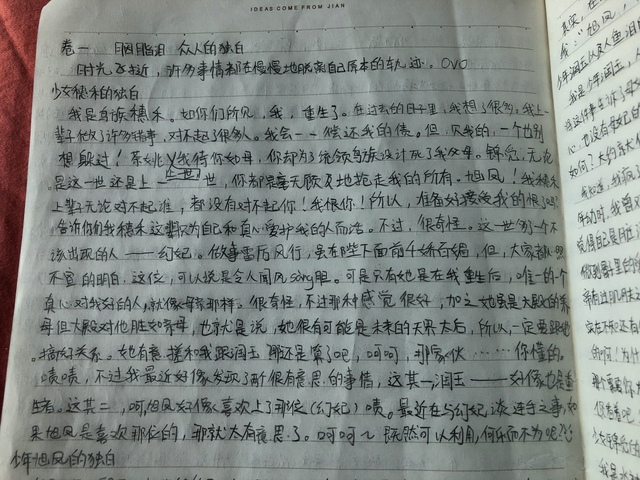 IDEAS COME FROM JIAN
卷一 胭脂泪 众人的独白
时光飞逝，许多事情都在慢慢地脱离自己原本的轨迹。OVO
少女穗禾的独白
我是鸟族穗禾。如你们所见，我，重生了。在过去的日子里，我想了很多，我上一
辈子做了许多错事，对不起了很多人。我会一一偿还我的债。但，欠我的，一个也别
想躲过！荼姚，我待你如母，你却为了统领鸟族设计死了我父母。锦觅，无论
是这一世还是上一世，你都是毫无顾及地抢走我的所有。旭凤！我穗禾
上辈子无论对不起谁，都没有对不起你！我恨你！所以，准备好接受我的恨了吗？
告诉你们我穗禾这辈子为自己和真心爱护我的人而活。不过，很奇怪。这一世多了一个不
该出现的人——幻妃。做事雷厉风行，虽在陛下面前千娇百媚，但，大家都心照
不宣的明白，这位，可以说是令人闻风sàng胆。可是只有她是在我重生后，唯一的一个
真心对我好的人，就像母亲那样。很奇怪，不过那种感觉很好，加之她虽是大殿的养
母但大殿对他胜如亲母，也就是说，她很有可能是未来的天界太后，所以，一定要跟她
搞好关系。她有意撮和我跟润玉 那还是算了吧，呵呵，那家伙……你懂的。
啧啧，不过我最近好像发现了两个很有意思的事情，这其一，润玉——好像也是重
生者。这其二，呵，旭凤好像喜欢上了那位（幻妃）啧。最近在与幻妃谈连合之事，如
果旭凤是喜欢那位的，那就太有意思了。呵呵~既然可以利用，何乐而不为呢？
少年旭凤的独白